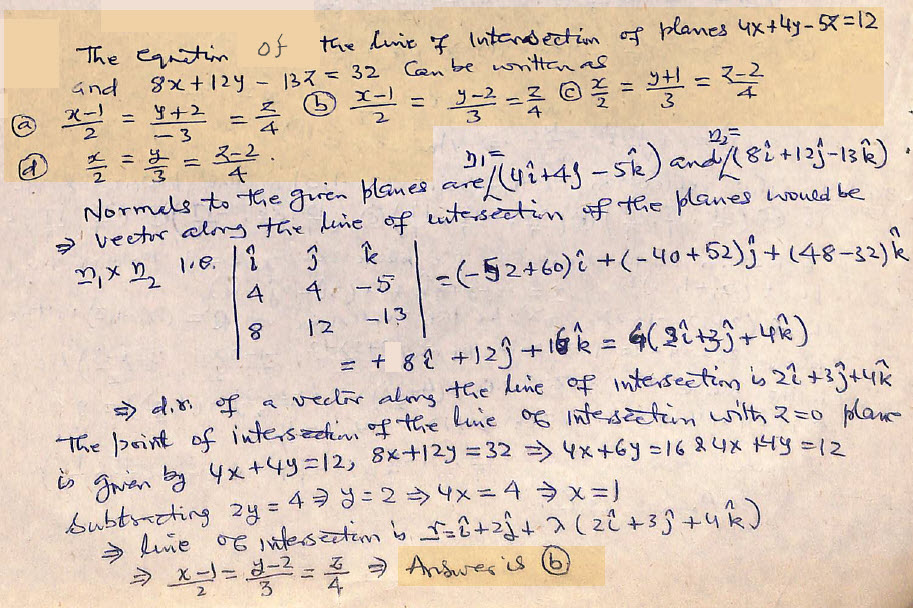 The equation of the line of intersection of planes 4x+4y-5z=12
and 8x+12y-13z=32 Can be written as
(a) x-1/2 = y+2/-3 = z/4 (b) x-1/2 = y-2/3 = z/4 (c) x/2 = y+1/3 = z-2/4
(d) x/2 = y/3 = z-2/4.
Normals to the given planes are n₁=(4î+4ĵ-5k̂) and n₂=(8î+12ĵ-13k̂).
⇒ vector along the line of intersection of the planes would be
n₁×n₂ i.e. | î ĵ k̂ | = (-52+60)î+(-40+52)ĵ+(48-32)k̂
| 4 4 -5 |
| 8 12 -13 |
= +8î+12ĵ+16k̂ = 4(2î+3ĵ+4k̂)
⇒ d.r. of a vector along the line of intersection is 2î+3ĵ+4k̂
The point of intersection of the line of intersection with z=0 plane
is given by 4x+4y=12, 8x+12y=32 ⇒ 4x+6y=16 & 4x+4y=12
Subtracting 2y=4 ⇒ y=2 ⇒ 4x=4 ⇒ x=1
⇒ line of intersection is r=î+2ĵ+λ(2î+3ĵ+4k̂)
⇒ x-1/2 = y-2/3 = z/4 ⇒ Answer is (b)